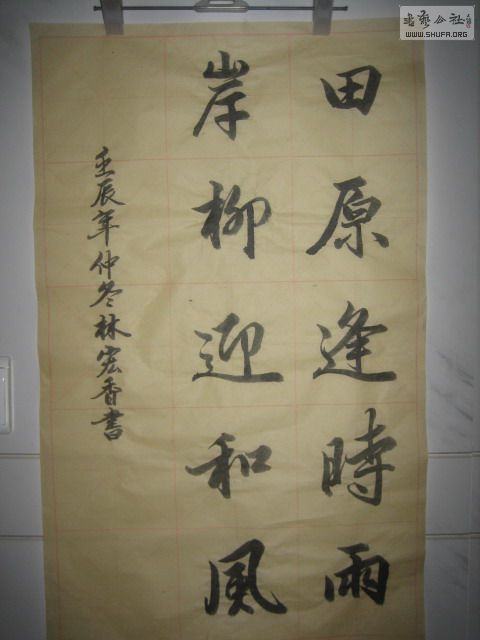 田原逢時雨
岸柳迎和風
壬辰年仲冬林宏香書
書藝公社
WWW.SHUFA.ORG